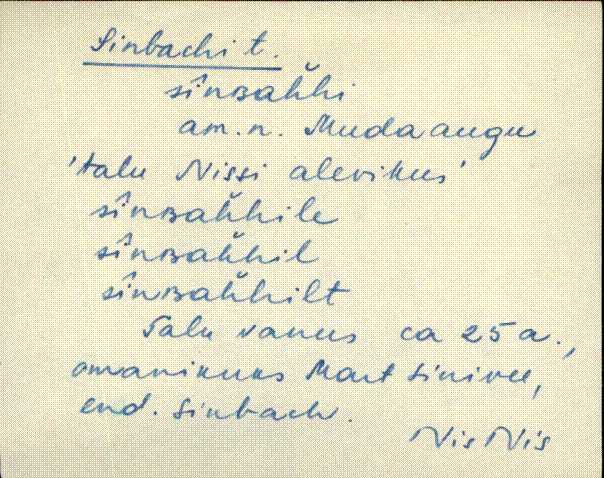 Sinbachi t.
sînʙah̆hi
am.n. Mudaaugu
'talu Nissi alevikus'
sînʙah̆hile
sînʙah̆hil
sînʙah̆hilt
Talu vanus ca 25 a.,
omanikuks Mart Sinivee,
end. Sinbach.
Nis Nis